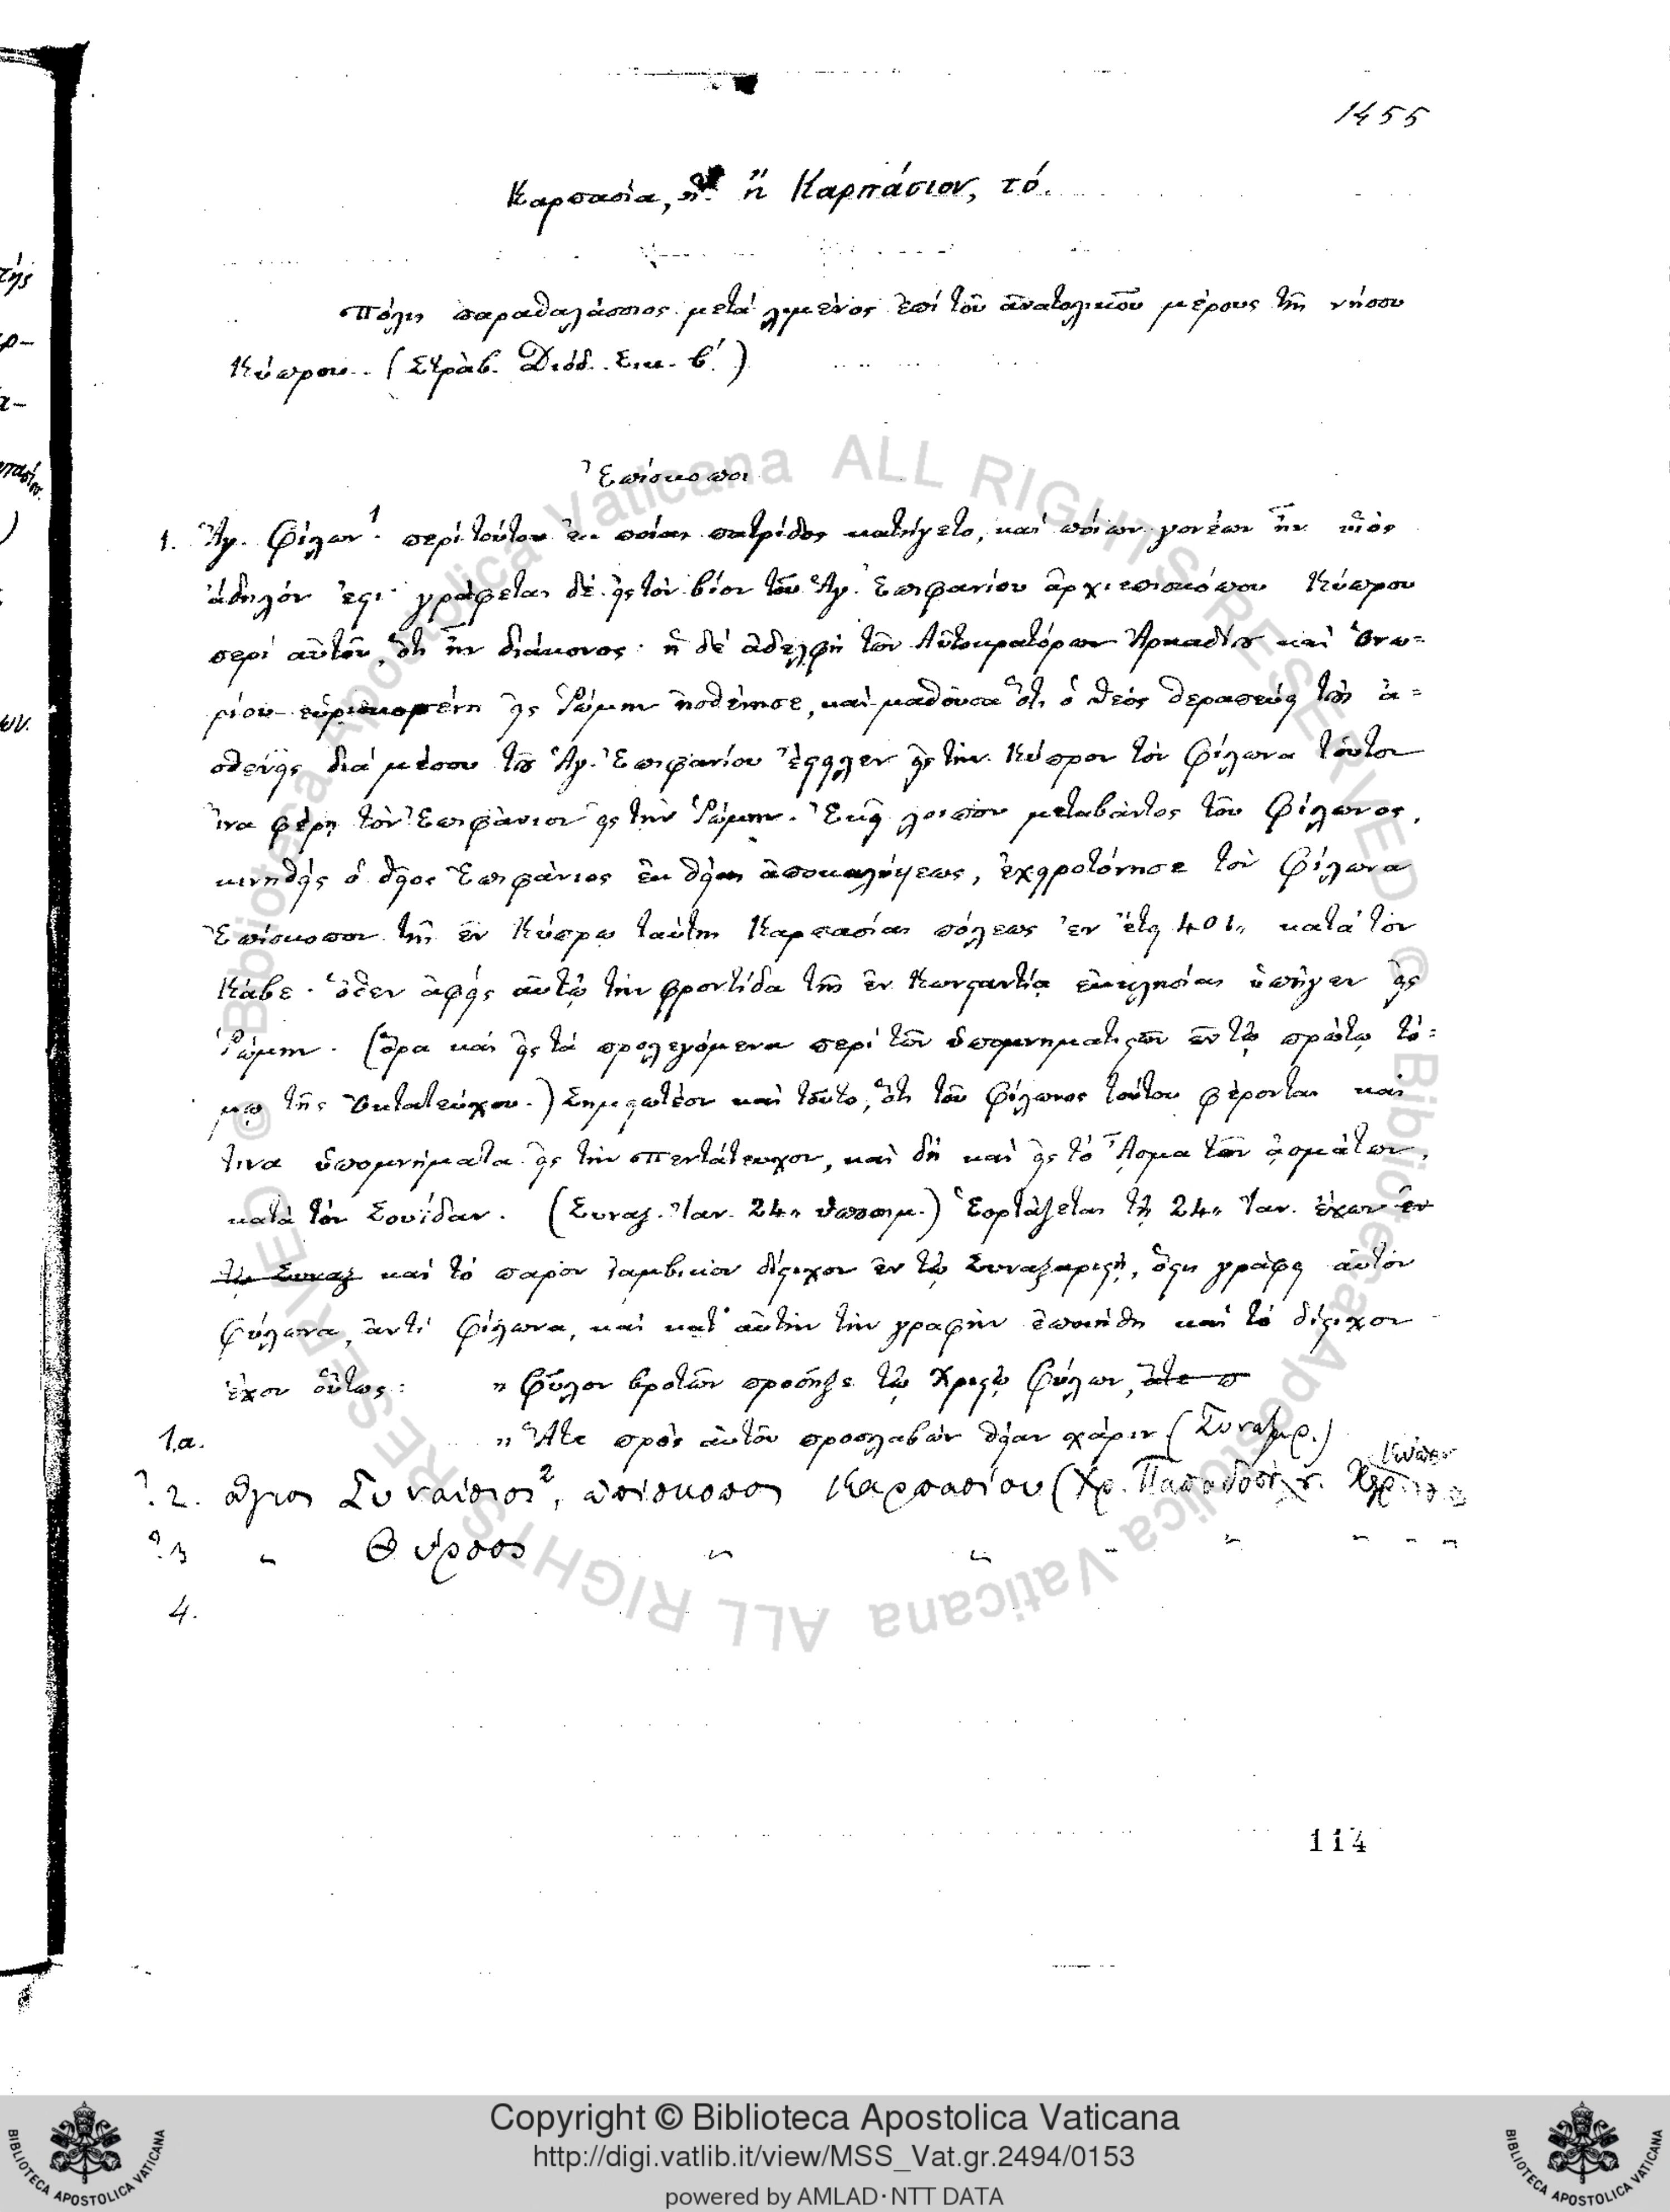 1455
Καρπασία, ἡ. ἢ Καρπάσιον, τό.
Πόλις παραθαλάσσιος μετὰ λιμένος ἐπὶ τοῦ ἀνατολικοῦ μέρους τῆς νήσου
Κύπρου. (Στράβ. Διόδ. Σικ. β΄)
Ἐπίσκοποι
1. Ἅγ. Φίλων 1. περὶ τούτου ἐκ ποίας πατρίδος κατήγετο, καὶ ποίων γονέων ἦν υἱὸς
ἄδηλόν ἐστι· γράφεται δὲ εἰς τὸν βίον τοῦ Ἁγ. Ἐπιφανίου ἀρχιεπισκόπου Κύπρου
περὶ αὐτοῦ, ὅτι ἦν διάκονος· ἡ δὲ ἀδελφὴ τῶν Αὐτοκρατόρων Ἀρκαδίου καὶ Ὁνω-
ρίου εὑρισκομένη εἰς Ῥώμην ἠσθένησε, καὶ μαθοῦσα ὅτι ὁ θεὸς θεραπεύει τοὺς ἀ-
σθενεῖς διὰ μέσου τοῦ Ἁγ. Ἐπιφανίου ἔστειλεν εἰς τὴν Κύπρον τὸν Φίλωνα τοῦτον
ἵνα φέρῃ τὸν Ἐπιφάνιον εἰς τὴν Ῥώμην. Ἐκεῖ λοιπὸν μεταβάντος τοῦ Φίλωνος,
κινηθεὶς ὁ θεῖος Ἐπιφάνιος ἐκ θείας ἀποκαλύψεως, ἐχειροτόνησε τὸν Φίλωνα
Ἐπίσκοπον τῆς ἐν Κύπρῳ ταύτης Καρπασίας πόλεως ἐν ἔτει 401,, κατὰ τὸν
Κάβε· ὅθεν ἀφεὶς αὐτῷ τὴν φροντίδα τῆς ἐν Κωνσταντίᾳ ἐκκλησίας ὑπῆγεν εἰς
Ῥώμην. (ὅρα καὶ εἰς τὰ προλεγόμενα περὶ τῶν ὑπομνηματιστῶν ἐν τῷ πρώτῳ τό-
μῳ τῆς Ὀκτατεύχου.) Σημειωτέον καὶ τοῦτο, ὅτι τοῦ Φίλωνος τούτου φέρονται καὶ
τινα ὑπομνήματα εἰς τὴν πεντάτευχον, καὶ δὴ καὶ εἰς τὸ Ἆσμα τῶν ᾀσμάτων,
κατὰ τὸν Σουΐδαν. (Συναξ. Ἰαν. 24,, ὑποσημ.) Ἑορτάζεται τῇ 24,, Ἰαν. ἔχων ἐν
τῷ Συναξ καὶ τὸ παρὸν ἰαμβικὸν δίστιχον ἐν τῷ Συναξαριστῇ, ὅστις γράφει αὐτὸν
Φύλωνα, ἀντὶ Φίλωνα, καὶ κατ' αὐτὴν τὴν γραφὴν ἐποιήθη καὶ τὸ δίστιχον
ἔχον οὕτως: ,, Φῦλον βροτῶν προσῆξε τῷ Χριστῷ Φύλων, ἅτε π
1.α. ,, Ἅτε πρὸς αὐτοῦ προσλαβὼν θείαν χάριν (Συναξαρ.)
?.2. ἅγιος Συνέσιος 2, ἐπίσκοπος Καρπασίου (Χρ. Παπαδοπ.
?.3 " Θύρσος " " " " " " "
4.
114
Copyright © Biblioteca Apostolica Vaticana
http://digi.vatlib.it/view/MSS_Vat.gr.2494/0153
powered by AMLAD·NTT DATA
BIBLIOTECA APOSTOLICA VATICANA
BIBLIOTECA APOSTOLICA VATICANA
© Biblioteca Apostolica Vaticana ALL RIGHTS RESERVED
© Biblioteca Apostolica Vaticana ALL RIGHTS RESERVED